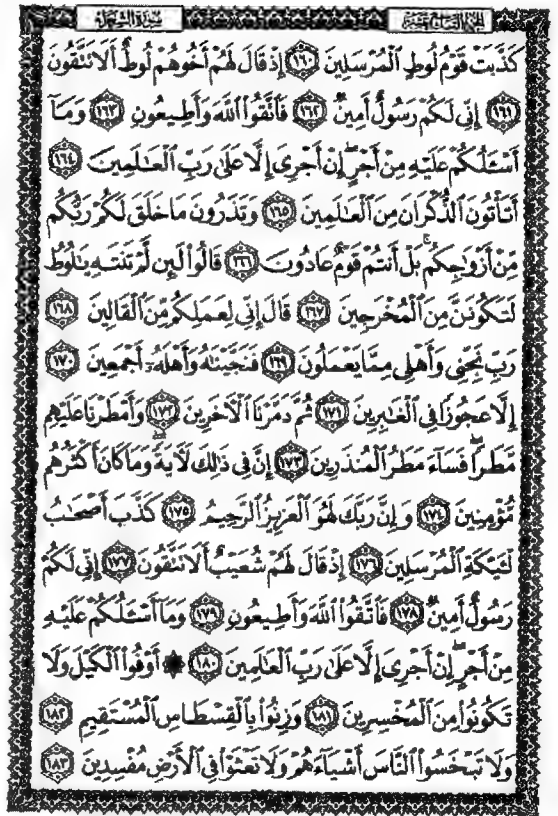 الجزء التاسع عشر سورة الشعراء
كَذَّبَتْ قَوْمُ لُوطٍ ٱلْمُرْسَلِينَ ١٦٠ إِذْ قَالَ لَهُمْ أَخُوهُمْ لُوطٌ أَلَا تَتَّقُونَ
١٦١ إِنِّي لَكُمْ رَسُولٌ أَمِينٌ ١٦٢ فَٱتَّقُوا۟ ٱللَّهَ وَأَطِيعُونِ ١٦٣ وَمَآ
أَسْـَٔلُكُمْ عَلَيْهِ مِنْ أَجْرٍ إِنْ أَجْرِىَ إِلَّا عَلَىٰ رَبِّ ٱلْعَـٰلَمِينَ ١٦٤
أَتَأْتُونَ ٱلذُّكْرَانَ مِنَ ٱلْعَـٰلَمِينَ ١٦٥ وَتَذَرُونَ مَا خَلَقَ لَكُمْ رَبُّكُم
مِّنْ أَزْوَٰجِكُم ۚ بَلْ أَنتُمْ قَوْمٌ عَادُونَ ١٦٦ قَالُوا۟ لَئِن لَّمْ تَنتَهِ يَـٰلُوطُ
لَتَكُونَنَّ مِنَ ٱلْمُخْرَجِينَ ١٦٧ قَالَ إِنِّي لِعَمَلِكُم مِّنَ ٱلْقَالِينَ ١٦٨
رَبِّ نَجِّنِى وَأَهْلِى مِمَّا يَعْمَلُونَ ١٦٩ فَنَجَّيْنَـٰهُ وَأَهْلَهُۥٓ أَجْمَعِينَ ١٧٠
إِلَّا عَجُوزًا فِى ٱلْغَـٰبِرِينَ ١٧١ ثُمَّ دَمَّرْنَا ٱلْـَٔاخَرِينَ ١٧٢ وَأَمْطَرْنَا عَلَيْهِم
مَّطَرًا ۖ فَسَآءَ مَطَرُ ٱلْمُنذَرِينَ ١٧٣ إِنَّ فِى ذَٰلِكَ لَـَٔايَةً ۖ وَمَا كَانَ أَكْثَرُهُم
مُّؤْمِنِينَ ١٧٤ وَإِنَّ رَبَّكَ لَهُوَ ٱلْعَزِيزُ ٱلرَّحِيمُ ١٧٥ كَذَّبَ أَصْحَـٰبُ
لْـَٔيْكَةِ ٱلْمُرْسَلِينَ ١٧٦ إِذْ قَالَ لَهُمْ شُعَيْبٌ أَلَا تَتَّقُونَ ١٧٧ إِنِّي لَكُمْ
رَسُولٌ أَمِينٌ ١٧٨ فَٱتَّقُوا۟ ٱللَّهَ وَأَطِيعُونِ ١٧٩ وَمَآ أَسْـَٔلُكُمْ عَلَيْهِ
مِنْ أَجْرٍ ۖ إِنْ أَجْرِىَ إِلَّا عَلَىٰ رَبِّ ٱلْعَـٰلَمِينَ ١٨٠ ۞ أَوْفُوا۟ ٱلْكَيْلَ وَلَا
تَكُونُوا۟ مِنَ ٱلْمُخْسِرِينَ ١٨١ وَزِنُوا۟ بِٱلْقِسْطَاسِ ٱلْمُسْتَقِيمِ ١٨٢
وَلَا تَبْخَسُوا۟ ٱلنَّاسَ أَشْيَآءَهُمْ وَلَا تَعْثَوْا۟ فِى ٱلْأَرْضِ مُفْسِدِينَ ١٨٣